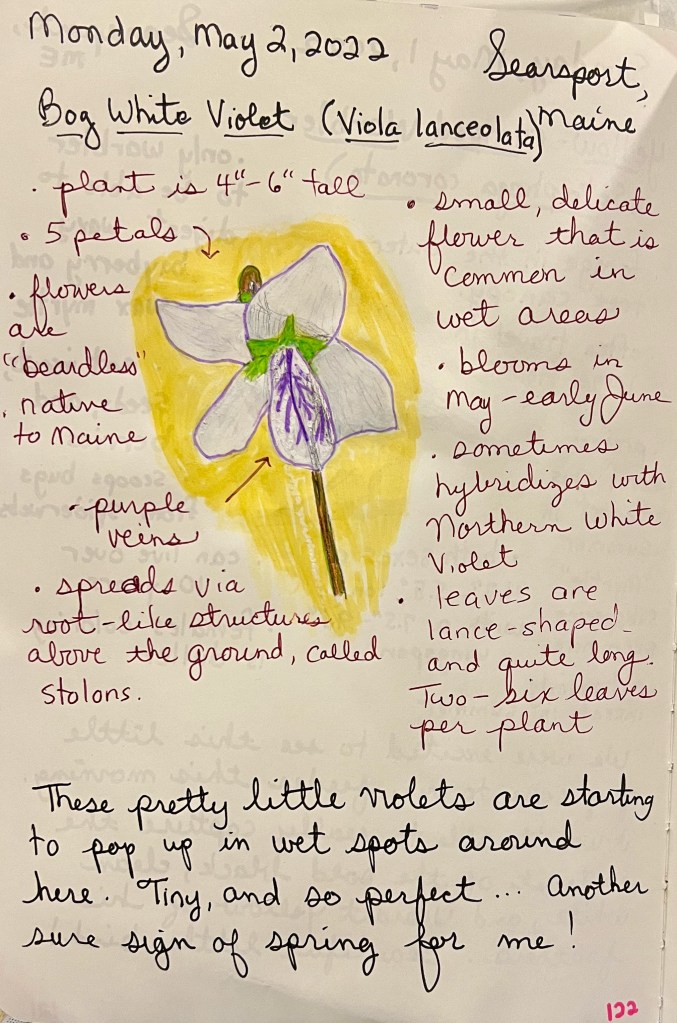 Monday, May 2, 2022
Searsport,
Maine
Bog White Violet (Viola lanceolata)
• plant is 4"-6" tall
• 5 petals
• flowers
are
"beardless"
• native
to Maine
• purple
veins
• spreads via
root-like structures
above the ground, called
stolons.
• small, delicate
flower that is
common in
wet areas
• blooms in
May - early June
• sometimes
hybridizes with
Northern White
Violet
• leaves are
lance-shaped
and quite long.
Two-six leaves
per plant
These pretty little violets are starting
to pop up in wet spots around
here. Tiny, and so perfect... Another
sure sign of spring for me!
122